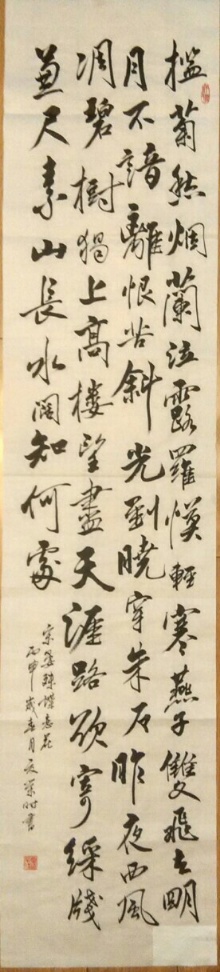 檻菊愁烟蘭泣露羅幙輕寒燕子雙飛去明
月不諳離恨苦斜光到曉穿朱户昨夜西風
凋碧樹獨上高樓望盡天涯路欲寄綵牋
兼尺素山長水闊知何處
宋晏殊蝶恋花
丙申歲春月書